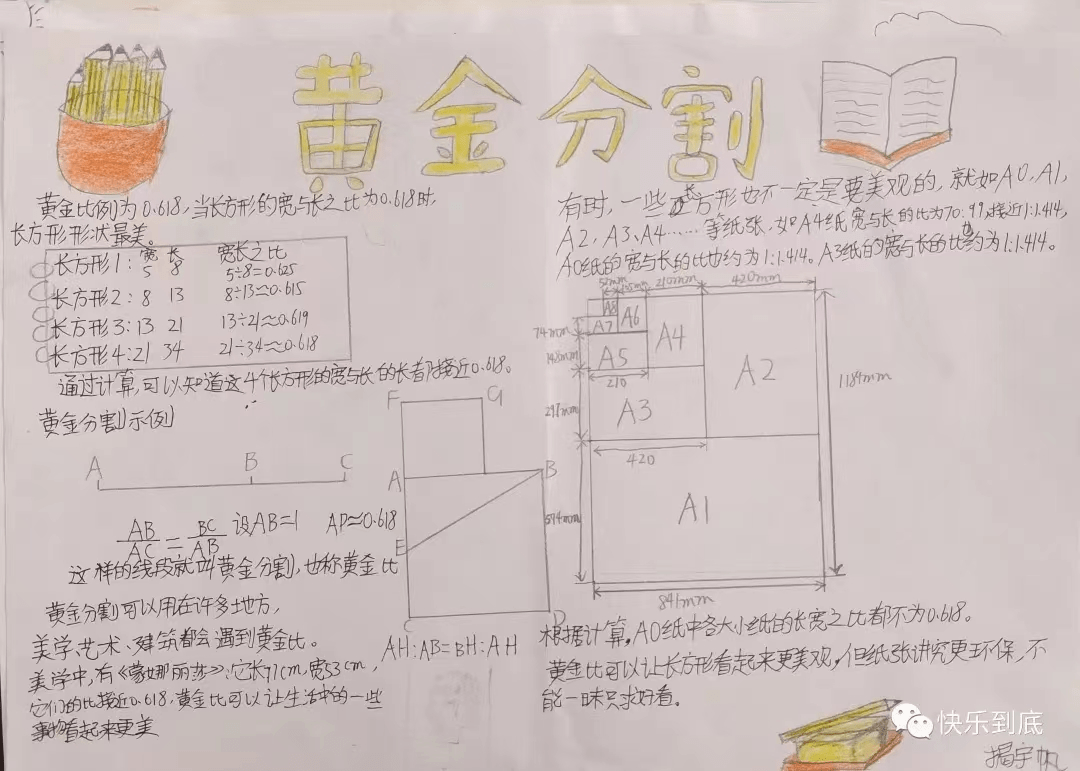 黄金分割
黄金比例为0.618,当长方形的宽与长之比为0.618时,
长方形形状最美。
宽 长 宽长之比
长方形1: 5 8 5÷8=0.625
长方形2: 8 13 8÷13≈0.615
长方形3: 13 21 13÷21≈0.619
长方形4: 21 34 21÷34≈0.618
通过计算,可以知道这4个长方形的宽与长的长都接近0.618。
黄金分割示例
A B C
AB/AC = BC/AB 设AB=1 AP≈0.618
这样的线段就叫黄金分割,也称黄金比
黄金分割可以用在许多地方,
美学、艺术、建筑都会遇到黄金比。
美学中,有《蒙娜丽莎》:它长71cm,宽53cm,
它们的比接近0.618,黄金比可以让生活中的一些
事物看起来更美
F G
A B
E
C D
AH:AB=BH:AH
有时,一些长方形也不一定是要美观的,就如A0,A1,
A2,A3,A4……等纸张,如A4纸宽与长的比为70:99,接近1:1.414,
A0纸的宽与长的比也约为1:1.414。A3纸的宽与长的比也约为1:1.414。
210mm 420mm
A8
A7 A6
74mm
A4
A5
148mm
A2
210
1184mm
297mm
A3
420
594mm
A1
841mm
根据计算,A0纸中各大小纸的长宽之比都不为0.618。
黄金比可以让长方形看起来更美观,但纸张讲究更环保,不
能一味只求好看。
快乐到底
揭宇帆